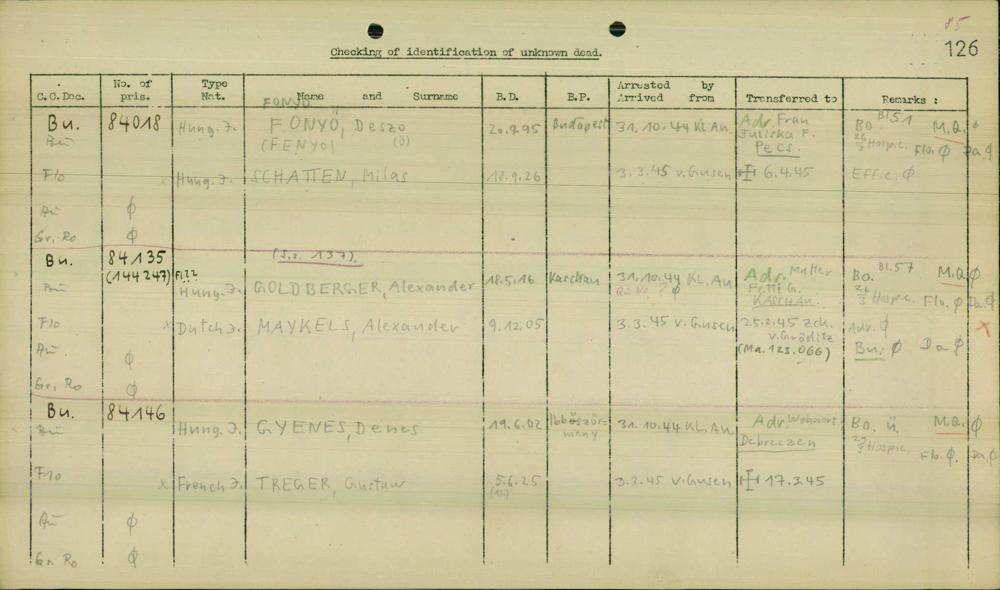 85
126
Checking of identification of unknown dead.
C.C.Doc. No. of pris. Type Nat. Name and Surname B.D. B.P. Arrested by Arrived from Transferred to Remarks :
FONYO
Bu. 84018 Hung. J. FONYÖ, Deszo 20.9.95 Budapest 31.10.44 KL.Au. Adr. Frau Juliska F. Pecs. Bo. Bl 51 M.Q. ϕ
(FENYO) (Ö) 26/3 Hospic. Flo. ϕ Da. ϕ
Flo x Hung. J. SCHATTEN, Milas 18.9.26 3.3.45 v. Gusen 6.4.45 Effec. ϕ
Au ϕ
Gr. Ro ϕ
Bu. 84135 (S.s. 137).
(144247) Fl 22 Hung. J. GOLDBERGER, Alexander 18.5.16 Kaschau 31.10.44 KL.Au. Adr. Mutter Fetti G. KASCHAU. Bo. Bl.57 M.Q. ϕ
? ϕ 26/3 Hospic. Flo. ϕ Da. ϕ
Flo x Dutch J. MAYKELS, Alexander 9.12.05 3.3.45 v. Gusen 25.2.45 zck. v. Gröditz Adr. ϕ X
Au. ϕ (Ma. 123.066) Bu. ϕ Da ϕ
Gr. Ro ϕ
Bu. 84146
Hung. J. GYENES, Denes 19.6.02 31.10.44 KL.Au. Adr. Wohnort Debreczen Bo. ü. M.Q. ϕ
Hospic. Flo. ϕ. Da. ϕ
Flo x French J. TREGER, Gustaw 5.6.25 3.3.45 v. Gusen 17.3.45
Au ϕ
Gr. Ro ϕ